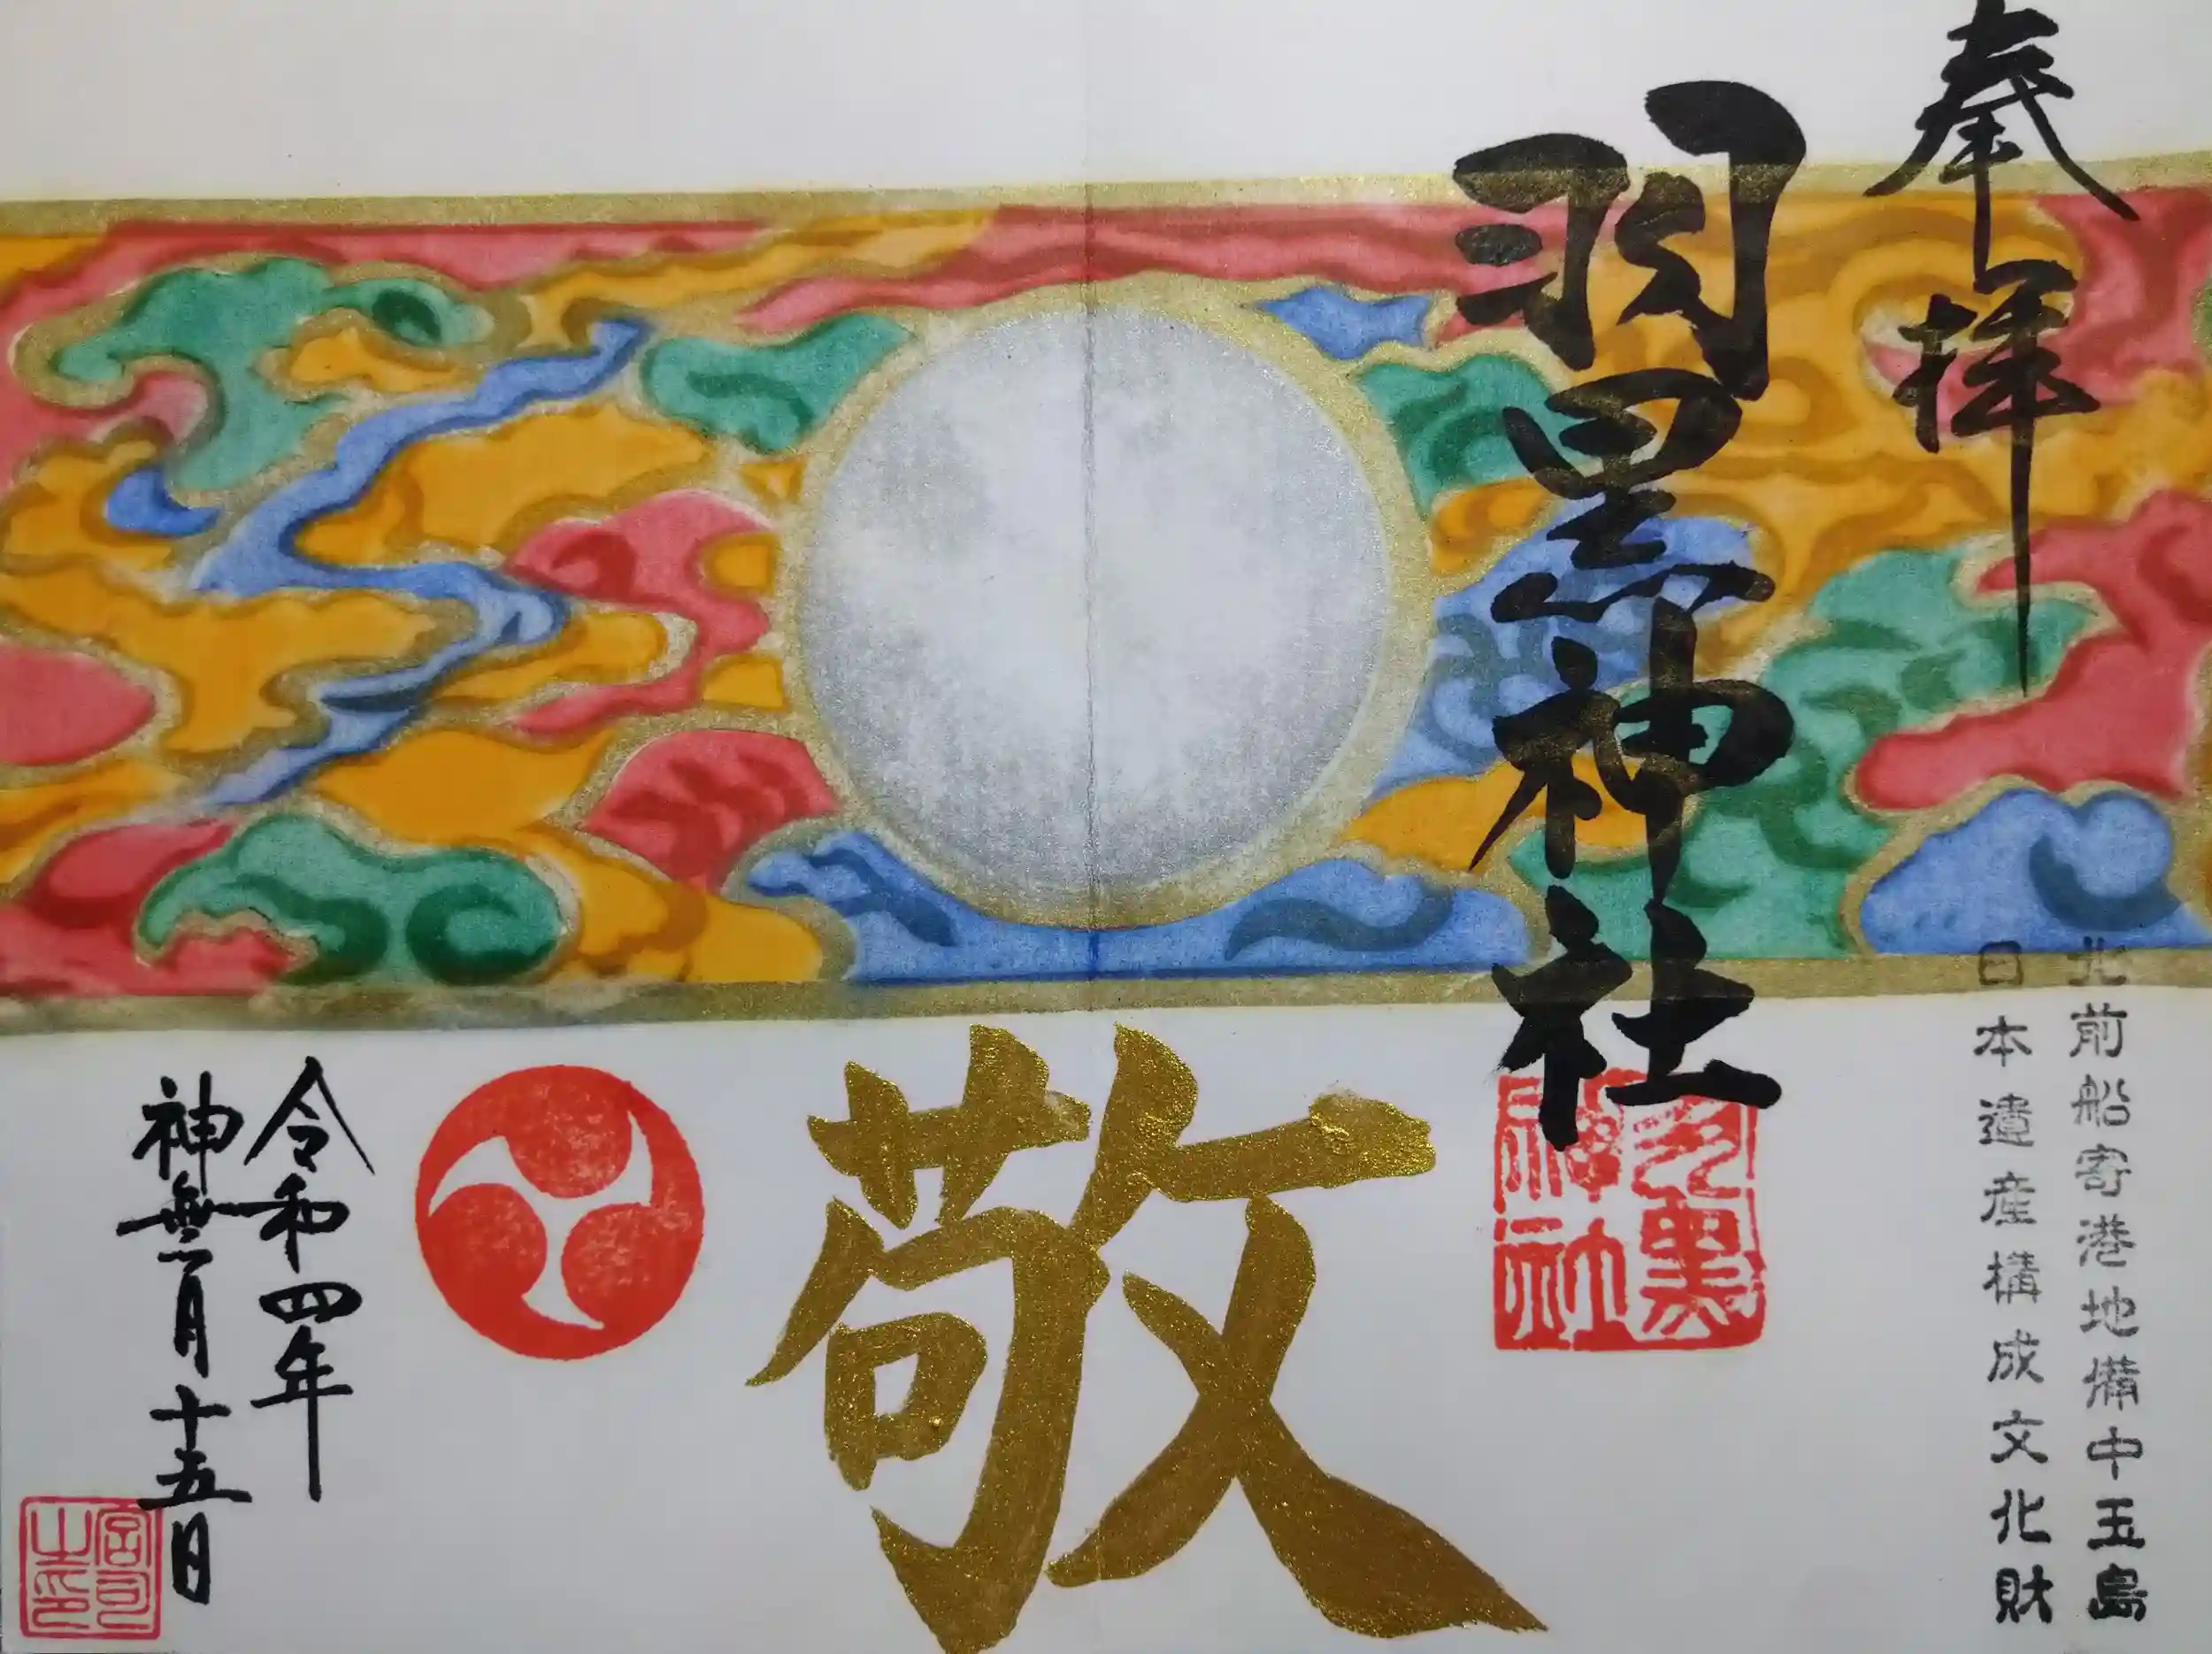 奉拝
北前船寄港地備中玉島
日本遺産構成文化財
羽黒神社
羽黒神社
敬
令和四年
神無月十五日
宮司之印